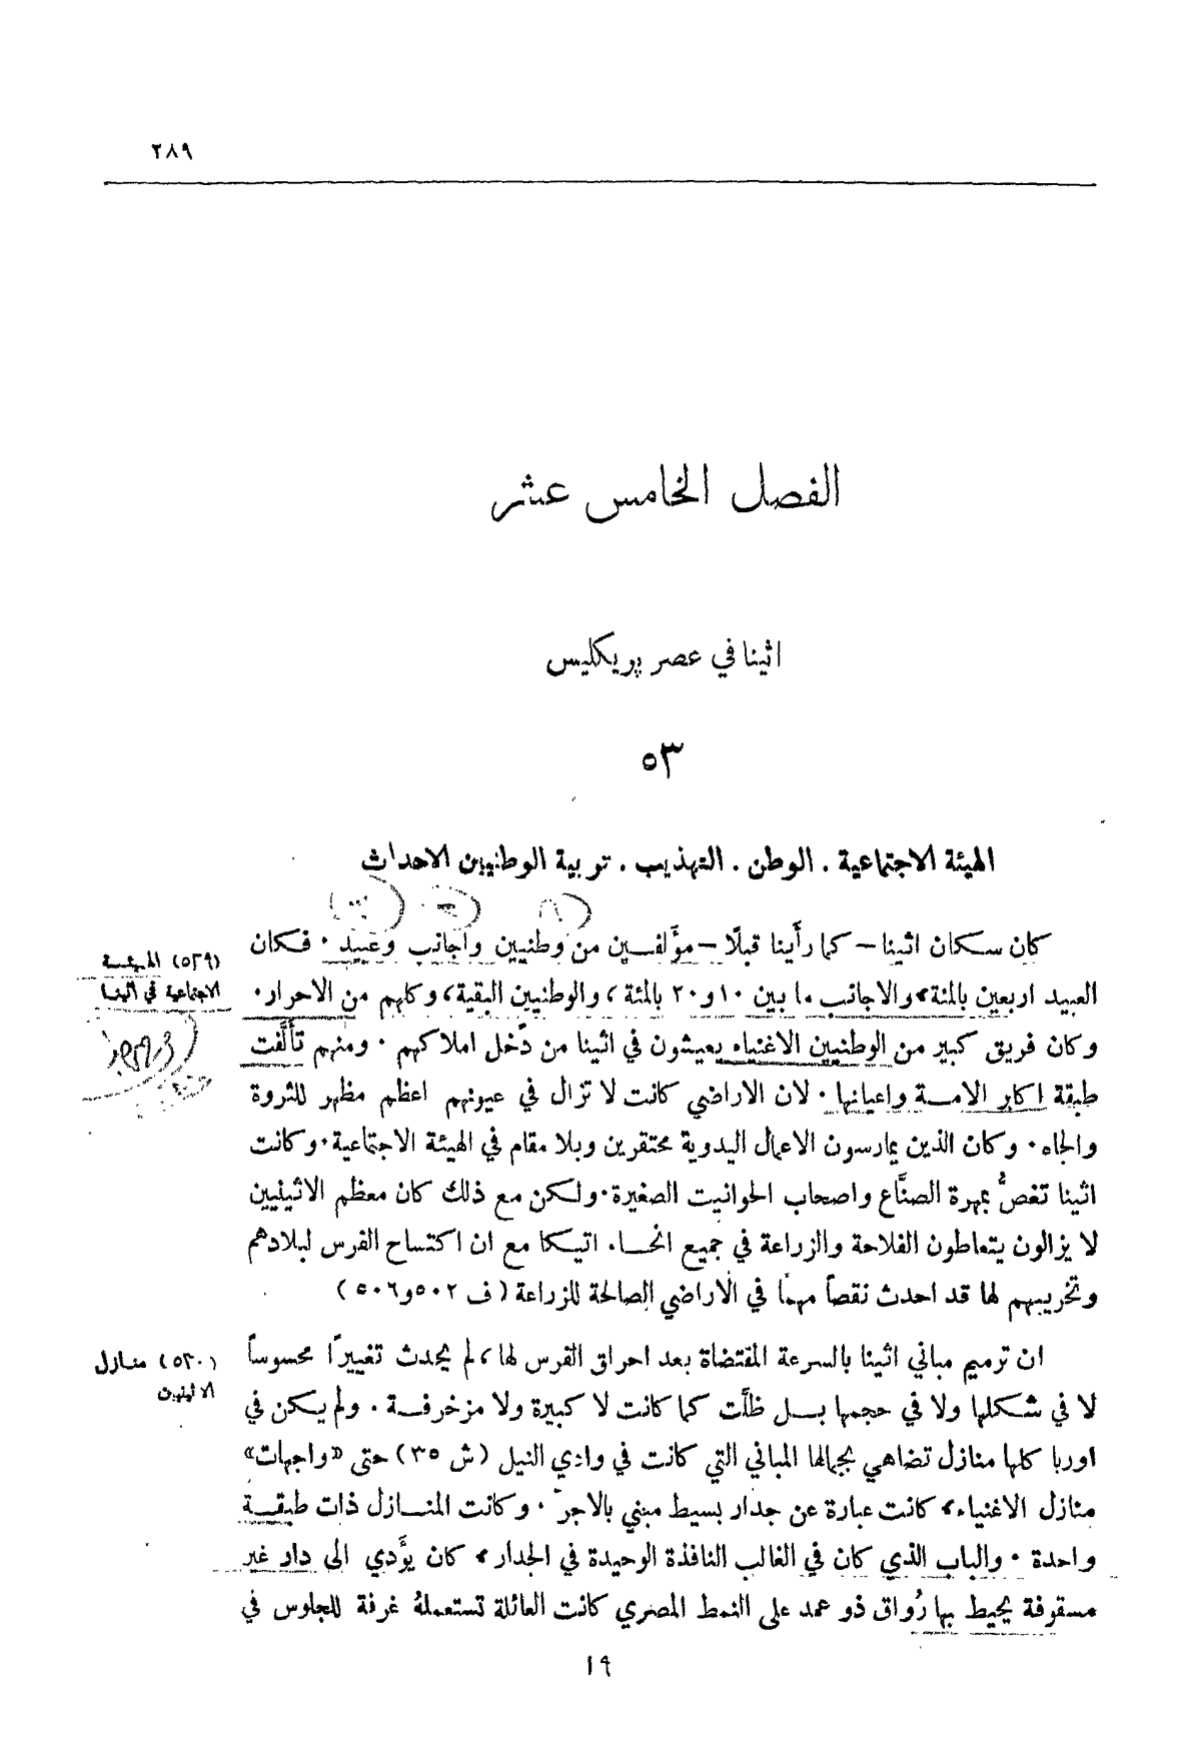 ٢٨٩
الفصل الخامس عشر
اثينا في عصر پريكليس
٥٣
الهيئة الاجتماعية . الوطن . التهذيب . تربية الوطنيين الاحداث
كان سكان اثينا – كما رأينا قبلًا – مؤَلفين من وطنيين واجانب وعبيد . فكان
(٥٢٩) الهيئة
الاجتماعية في اثينا
العبيد اربعين بالمئة، والاجانب ما بين ١٠ و٢٠ بالمئة، والوطنيين البقية، وكلهم من الاحرار.
وكان فريق كبير من الوطنيين الاغنياء يعيشون في اثينا من دَخل املاكهم . ومنهم تأَلَّفت
طبقة اكابر الامة واعيانها . لان الاراضي كانت لا تزال في عيونهم اعظم مظهر للثروة
والجاه . وكان الذين يمارسون الاعمال اليدوية محتقرين وبلا مقام في الهيئة الاجتماعية. وكانت
اثينا تغصُّ بمهرة الصنَّاع واصحاب الحوانيت الصغيرة. ولكن مع ذلك كان معظم الاثينيين
لا يزالون يتعاطون الفلاحة والزراعة في جميع انحاء اتيكا مع ان اكتساح الفرس لبلادهم
وتخريبهم لها قد احدث نقصاً مهمّا في الاراضي الصالحة للزراعة ( ف ٥٠٢ و٥٠٦ )
ان ترميم مباني اثينا بالسرعة المقتضاة بعد احراق الفرس لها، لم يحدث تغييرًا محسوساً
(٥٣٠) منازل
الاثينيين
لا في شكلها ولا في حجمها بل ظلَّت كما كانت لا كبيرة ولا مزخرفة . ولم يكن في
اوربا كلها منازل تضاهي بجمالها المباني التي كانت في وادي النيل (ش ٣٥ ) حتى «واجهات»
منازل الاغنياء، كانت عبارة عن جدار بسيط مبني بالاجرّ . وكانت المنازل ذات طبقة
واحدة . والباب الذي كان في الغالب النافذة الوحيدة في الجدار، كان يؤَدي الى دار غير
مسقوفة يحيط بها رُواق ذو عمد على النمط المصري كانت العائلة تستعملهُ غرفة للجلوس في
١٩